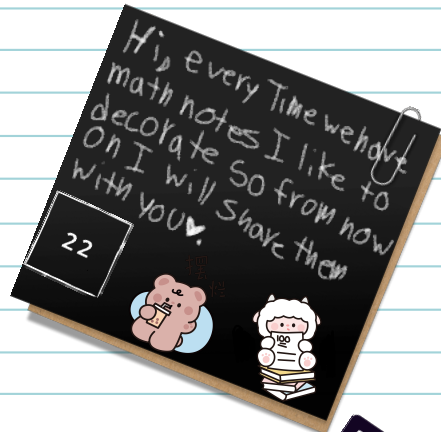 Hi, every Time we have
math notes I like to
decorate So from now
on I will Share them
with you
22
100